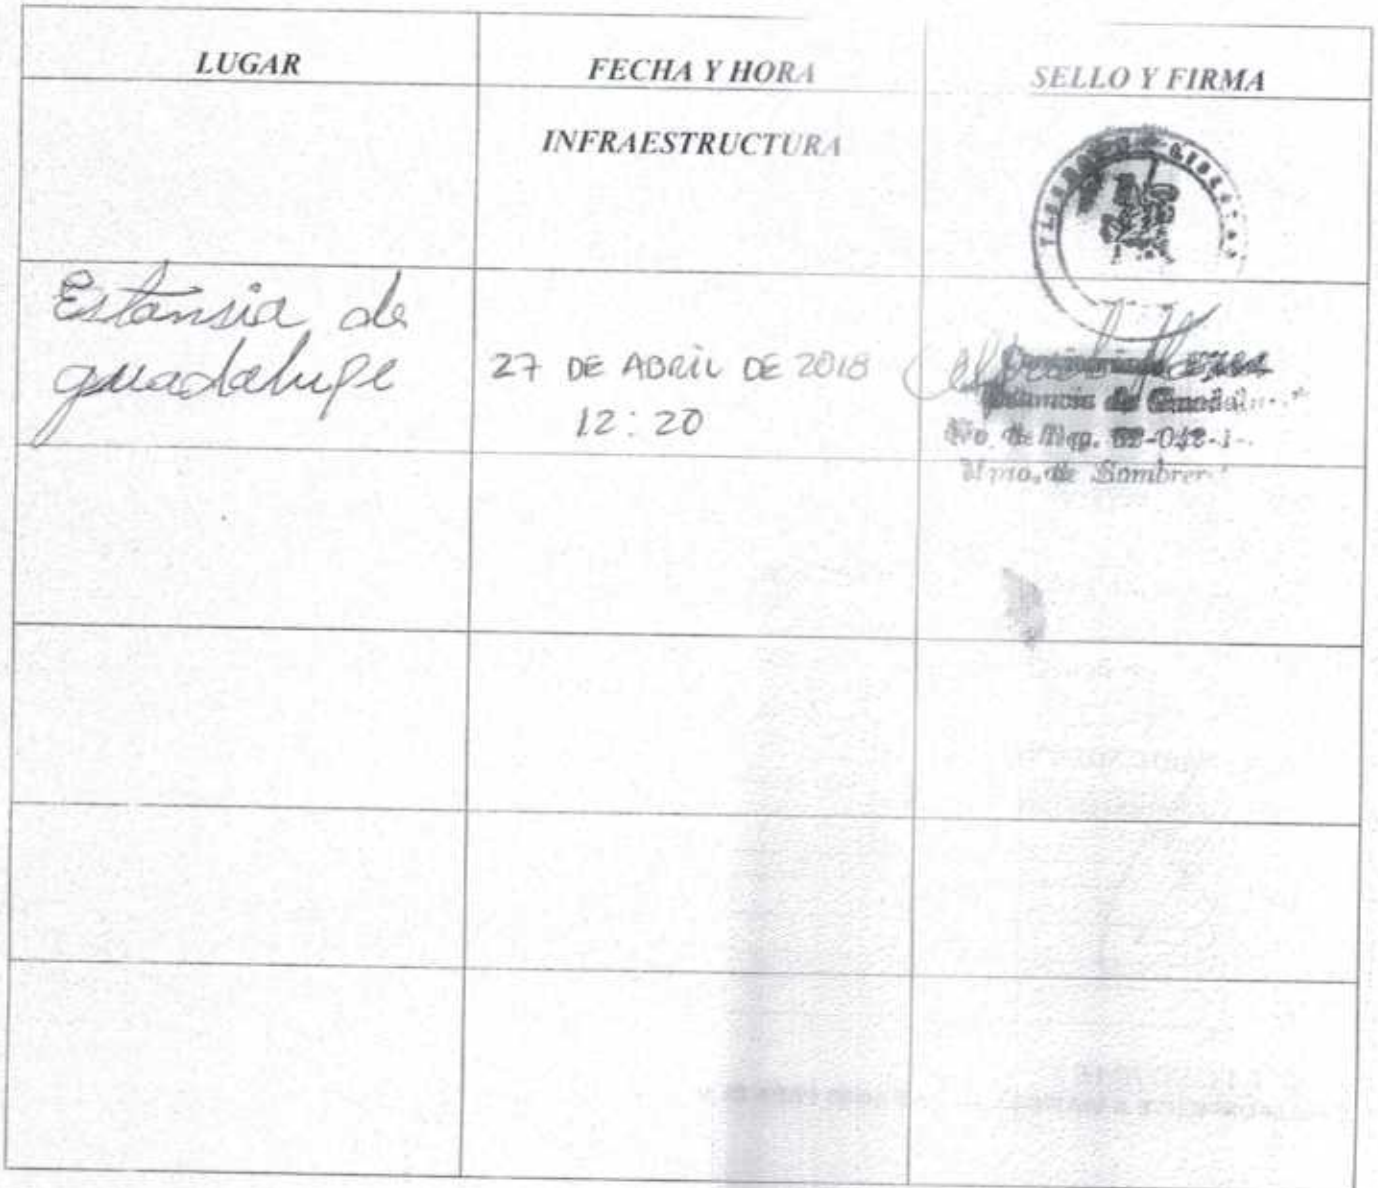 LUGAR
FECHA Y HORA
SELLO Y FIRMA
INFRAESTRUCTURA
Estansia de
guadalupe
27 DE ABRIL DE 2018
12:20
TIERRA Y
de
No. de Rep. 32-042-1
Mpio. de Sombrer